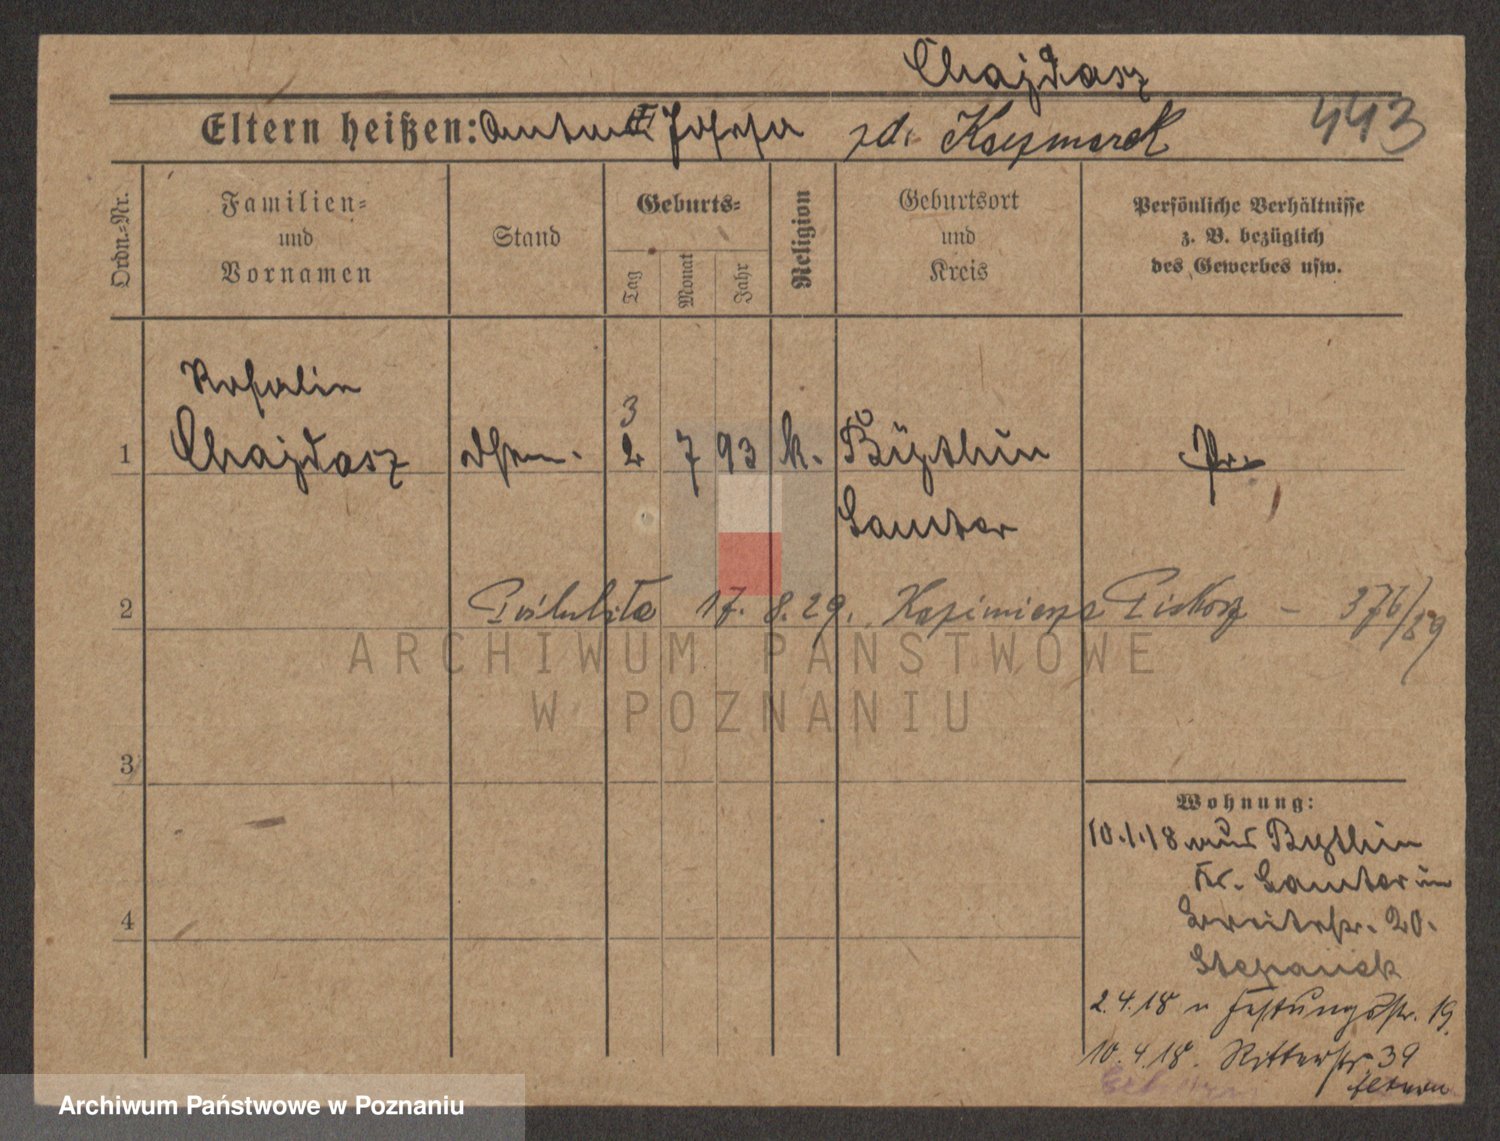 Chajdasz
Eltern heißen: Anton Josefa zd. Kaczmarek 443
Ordn.-Nr.
Familien-
und
Vornamen
Stand
Geburts-
Tag
Monat
Jahr
Religion
Geburtsort
und
Kreis
Persönliche Verhältnisse
z. B. bezüglich
des Gewerbes usw.
Rosalie
3
1 Chajdasz 2 7 93 k. Bÿthin Pr.
Samter
2 Poślubiła 17. 8. 29. Kazimierza Piskorz – 376/29
ARCHIWUM PAŃSTWOWE
W POZNANIU
3
Wohnung:
10.1.18 aus Bythin
Kr. Samter in
Breitestr. 20.
Stepanek
4
2.4.18 n Festungsstr. 19.
10.4.18. Ritterstr. 39
Archiwum Państwowe w Poznaniu